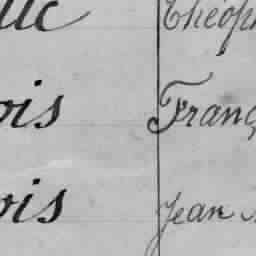 uc Théoph
ois Franç
ois Jean